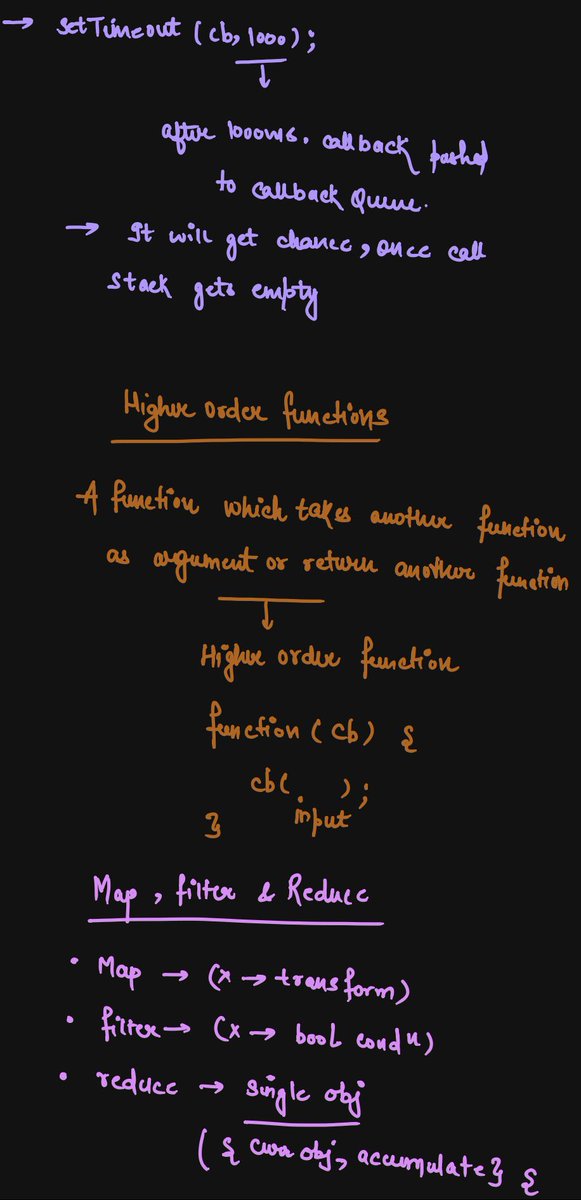 → setTimeout (cb, 1000);
↓
after 1000ms. callback pushed
to callback Queue.
→ It will get chance, once call
stack gets empty
Higher order functions
A function which takes another function
as argument or return another function
↓
Higher order function
function (cb) {
cb( );
input
}
Map, filter & Reduce
• Map → (x → transform)
• filter → (x → bool condn)
• reduce → single obj
( { curr obj, accumulate } {